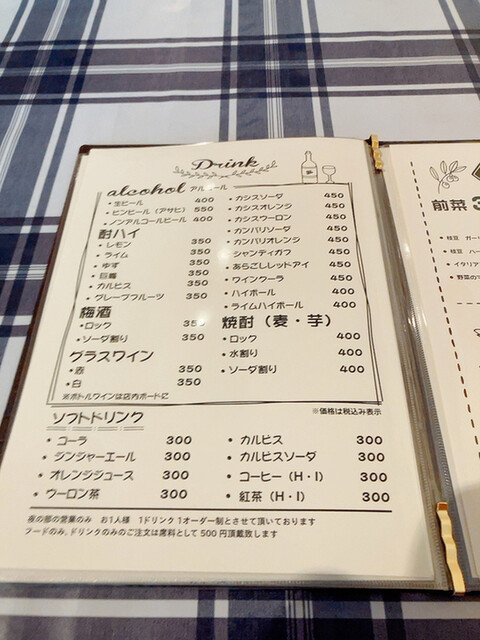 Drink
alcohol アルコール
・生ビール 400
・ビンビール（アサヒ） 550
・ノンアルコールビール 400
酎ハイ
・レモン 350
・ライム 350
・ゆず 350
・巨峰 350
・カルピス 350
・グレープフルーツ 350
梅酒
・ロック 350
・ソーダ割り 350
グラスワイン
・赤 350
・白 350
※ボトルワインは店内ボードに
・カシスソーダ 450
・カシスオレンジ 450
・カシスウーロン 450
・カンパリソーダ 450
・カンパリオレンジ 450
・シャンディガフ 450
・あらごしレッドアイ 450
・ワインクーラ 450
・ハイボール 400
・ライムハイボール 400
焼酎（麦・芋）
・ロック 400
・水割り 400
・ソーダ割り 400
※価格は税込み表示
ソフトドリンク
・コーラ 300
・ジンジャーエール 300
・オレンジジュース 300
・ウーロン茶 300
・カルピス 300
・カルピスソーダ 300
・コーヒー（H・I） 300
・紅茶（H・I） 300
夜の部の営業のみ お1人様 1ドリンク1オーダー制とさせて頂いております
フードのみ、ドリンクのみのご注文は席料として500円頂戴致します
前菜 3
・枝豆 ガー
・枝豆 ハー
・イタリア
・野菜の